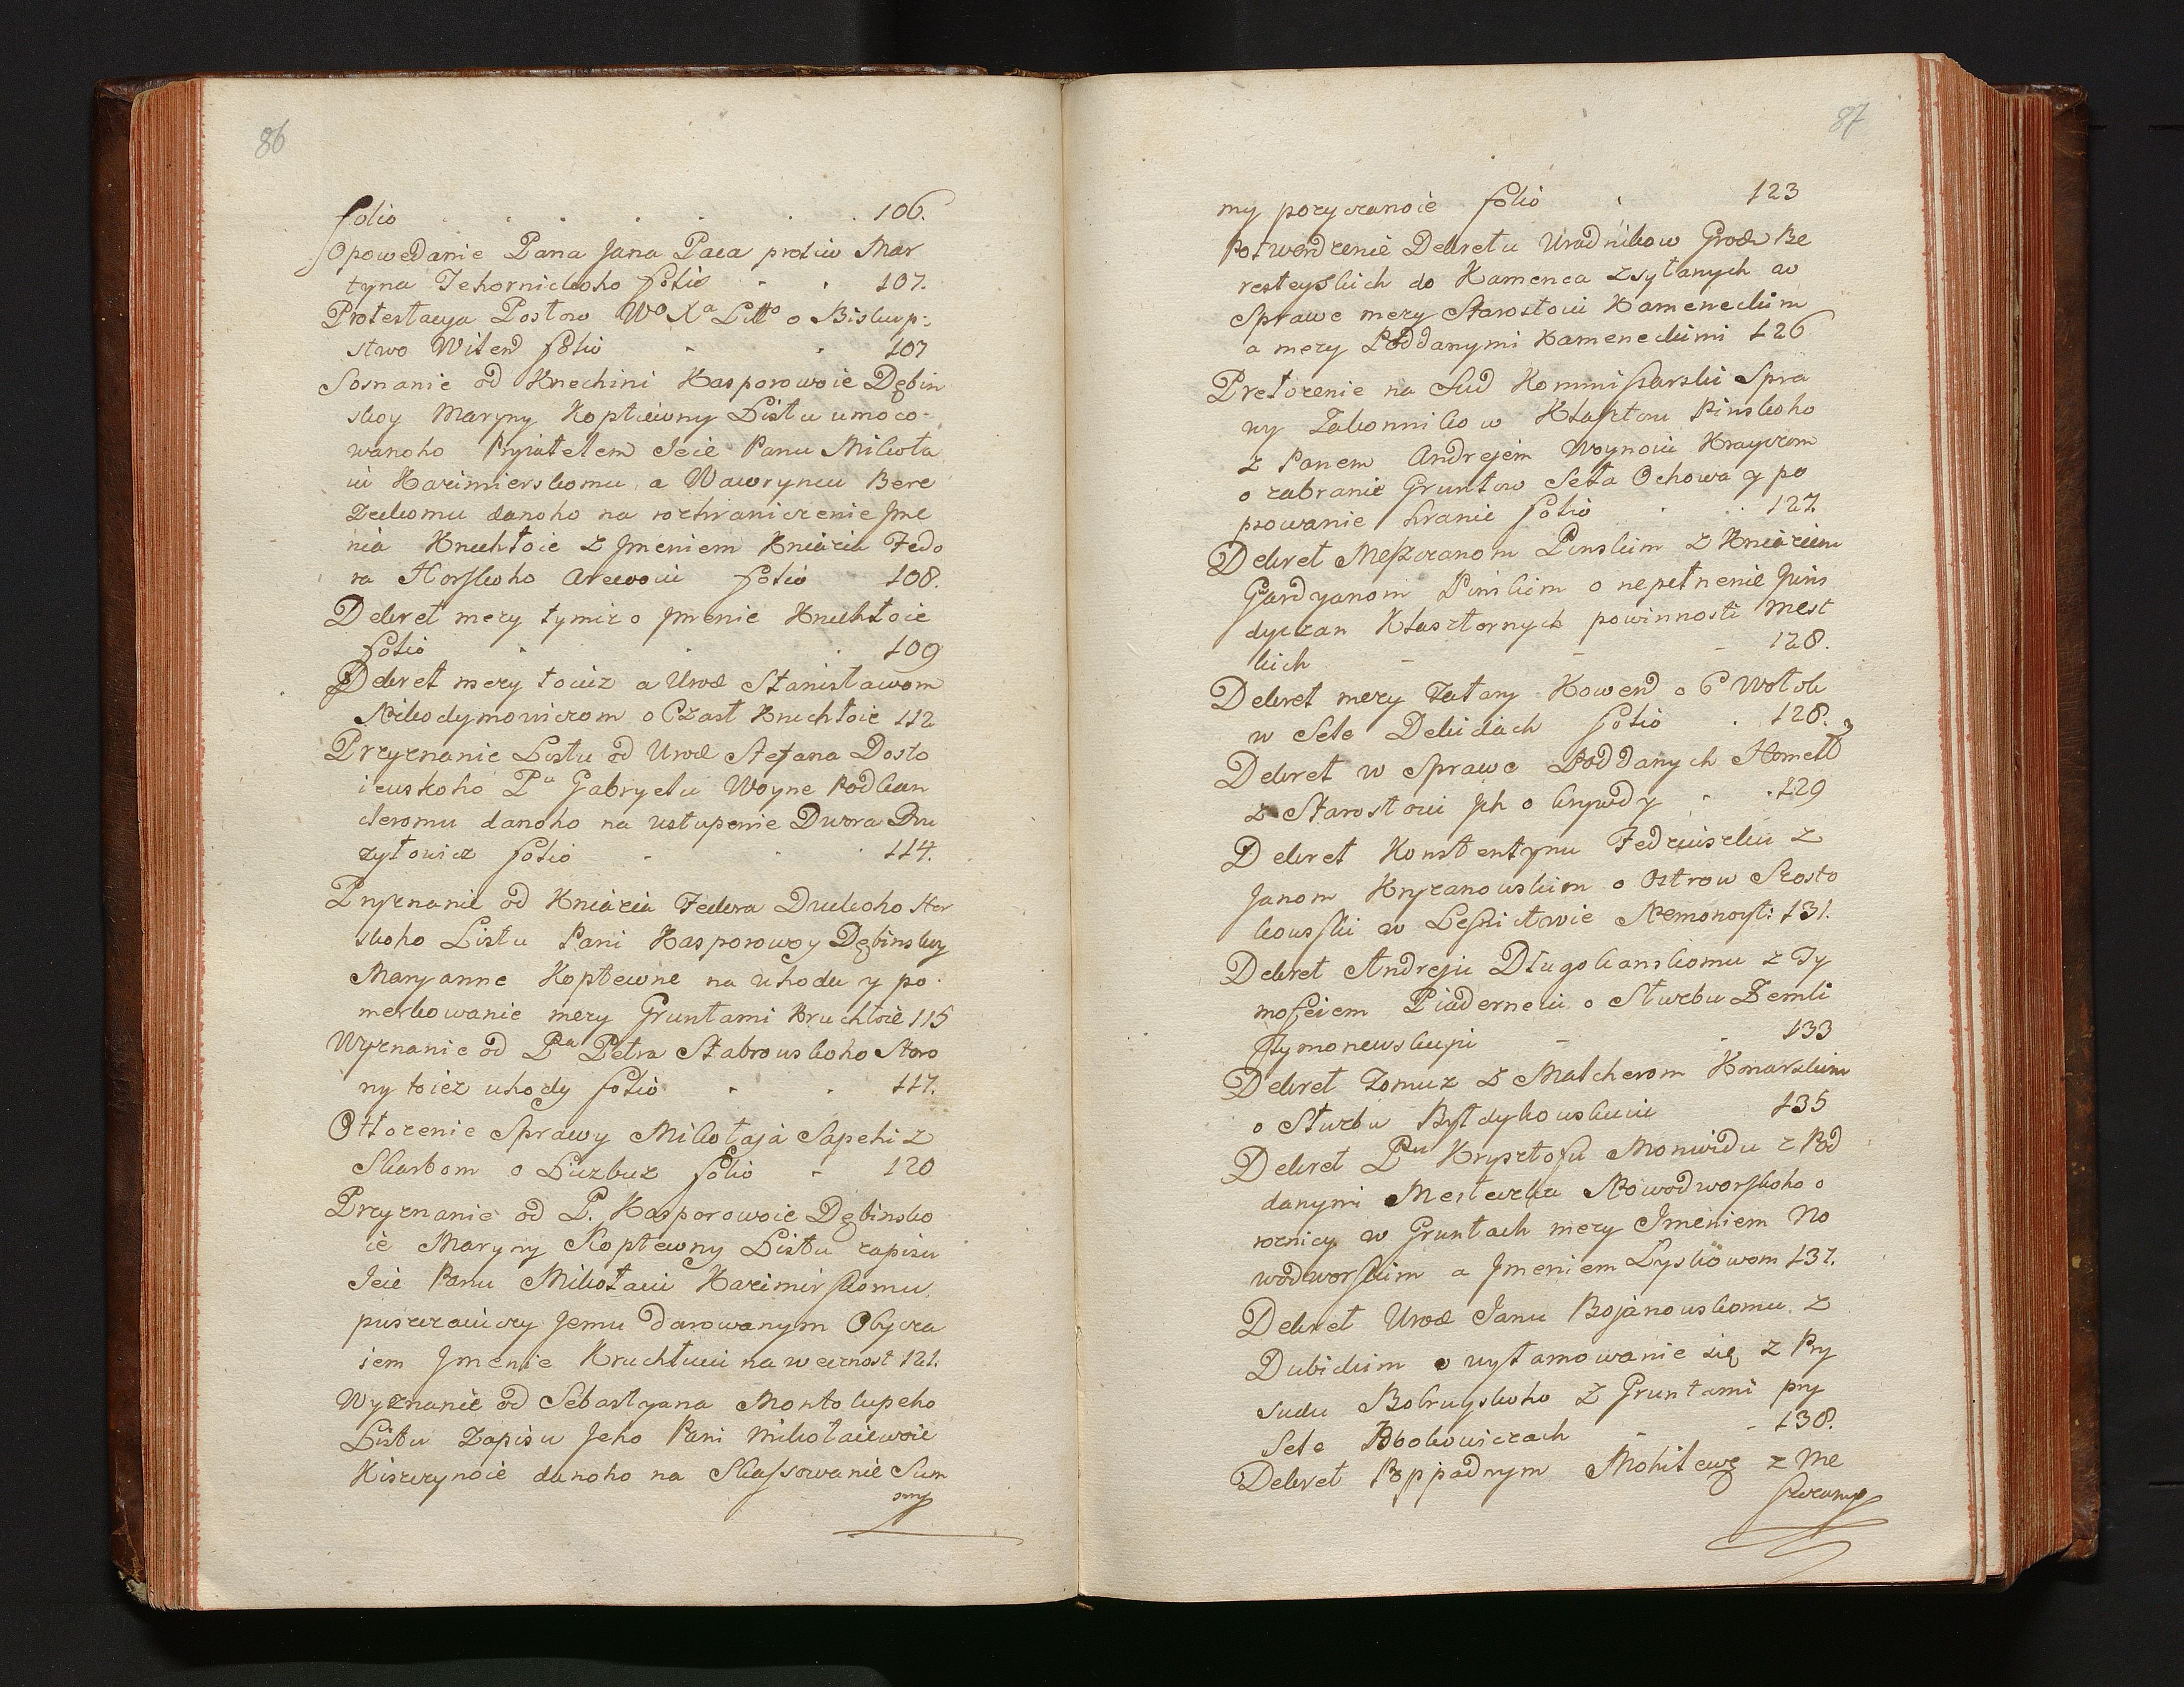 86
folio . . . . . . 106.
Opowedanie Pana Jana Paca protiw Mar
tyna Tehornickoho folio - . 107.
Protestacya Posłow Wo Xa Litto o Biskup:
stwo Wilen folio - . 107
Sosnanie od Knechini Kasporowoie Dębin
skoy Maryny Koptewny Listu umoco-
wanoho Pryiatelem Jeie Panu Mikoła
iu Kazimierskomu a Wawryncu Bere
zeckomu danoho na rozhraniczenie Jme
nia Kruchłoie z Jmeniem Kniazia Fedo
ra Horskoho Arewoiu folio 108.
Dekret mezy tymiz o Jmenie Kruchłoie
folio . . . 109
Dekret mezy toiuz a Urod Stanisławom
Nikodymowiczom o Czast Kruchłoie 112
Przyznanie Listu od Urod Stefana Dosto
iewskoho Pu Gabryelu Woyne Podkan
cleromu danoho na ustupenie Dwora Dru
zyłowicz folio - . . 114.
Pryznanie od Kniazia Fedora Druckoho Hor
skoho Listu Pani Kasporowoy Dębinskoy
Maryanne Koptewne na uhodu y po-
merkowanie mezy Gruntami Kruchłoie 115
Wyznanie od Pa Petra Stabrowskoho Storo
ny toiez uhody folio - . 117.
Otłozenie Sprawy Mikołaja Sapehi z
Skarbom o Luzbuz folio - 120
Przyznanie od P. Kasporowoie Dębinsko
ie Maryny Koptewny Listu zapisu
Jeie Panu Mikołaiu Kazimirskomu
puszczaiuczy Jemu Darowanym Obycza
iem Jmenie Kruchłuiu na wecznost 121.
Wyznanie od Sebastyana Montolupeho
Listu Zapisu Jeho Pani Mikołaiewoie
Kiszczynoie danoho na Skassowanie Sum
my
87
my pozyczanoie folio . 123
Potwerdzenie Dekretu Uradnikow Grodz Be
resteyskich do Kamenca zsyłanych w
Sprawe mezy Starostoiu Kameneckim
a mezy Poddanymi Kameneckimi 126
Prełozenie na Sud Kommissarski Spra
wy Zakonnikow Klasztoru Pinskoho
z Panem Andrejem Woynoiu Krayczom
o zabranie Gruntow Seła Ochowa y po
psowanie hranic folio . . 127.
Dekret Meszczanom Pinskim z Kniaziem
Gardyanom Pinskim o nepełnenie Juris
dyczan Klasztornych powinnosti Mest
kich - - - 128.
Dekret mezy Tatary Kowen o 6 Wołok
w Sele Dekidach folio . 128.
Dekret w Sprawe Poddanych Homel
z Starostoiu Jch o krywdy - . 129
Dekret Konstentynu Fedziuszku z
Janom Kryzanowskim o Ostrow Szosto
kowski w Lesnictwie Nemonoyt: 131.
Dekret Andrejiu Długokanskomu z Ty
mofeiem Piaderneiu o Służbu Zemli
Tymonewskuju - - 133
Dekret Tomuz z Malcherom Konarskim
o Służbu Byłdykowskuiu 135
Dekret Pu Krysztofu Moniwidu z Pod
danymi Mesteczka Nowodworskoho o
roznicy w Gruntach mezy Jmeniem No
wodworskim a Jmeniem Lyskowom 137.
Dekret Urod Janu Bojanowskomu z
Dubickim o wyłamowanie się z Pry
sudu Bobruyskoho z Gruntami pry
Sele Bbokowiczach - - 138.
Dekret Poppadnym Mohilewę z Me
szczany